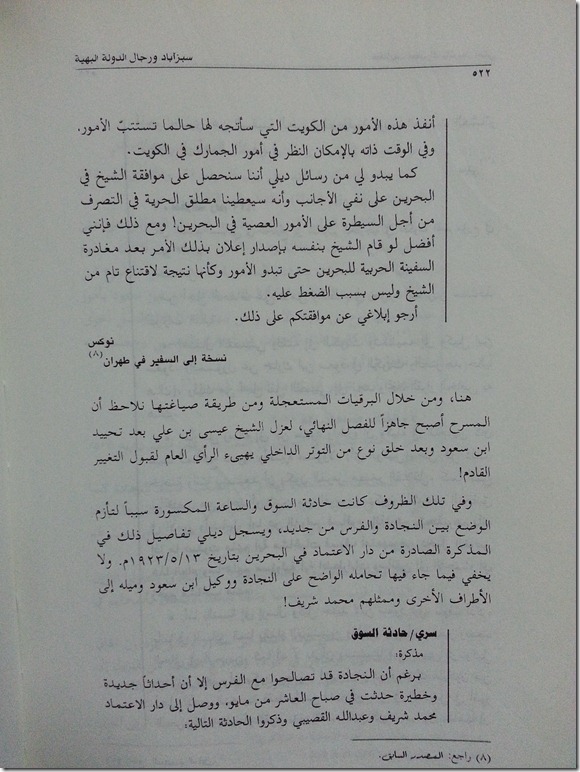 سبزآباد ورجال الدولة البهية
٥٢٢
أنفذ هذه الأمور من الكويت التي سأتجه لها حالما تستتبّ الأمور.
وفي الوقت ذاته بالإمكان النظر في أمور الجمارك في الكويت.
كما يبدو لي من رسائل ديلي أننا سنحصل على موافقة الشيخ في
البحرين على نفي الأجانب وأنه سيعطينا مطلق الحرية في التصرف
من أجل السيطرة على الأمور العصية في البحرين! ومع ذلك فإنني
أفضل لو قام الشيخ بنفسه بإصدار إعلان بذلك الأمر بعد مغادرة
السفينة الحربية للبحرين حتى تبدو الأمور وكأنها نتيجة لاقتناع تام من
الشيخ وليس بسبب الضغط عليه.
أرجو إبلاغي عن موافقتكم على ذلك.
نوكس
نسخة إلى السفير في طهران(٨)
هنا، ومن خلال البرقيات المستعجلة ومن طريقة صياغتها نلاحظ أن
المسرح أصبح جاهزاً للفصل النهائي، لعزل الشيخ عيسى بن علي بعد تحييد
ابن سعود وبعد خلق نوع من التوتر الداخلي يهيىء الرأي العام لقبول التغيير
القادم!
وفي تلك الظروف كانت حادثة السوق والساعة المكسورة سبباً لتأزم
الوضع بين النجادة والفرس من جديد، ويسجل ديلي تفاصيل ذلك في
المذكرة الصادرة من دار الاعتماد في البحرين بتاريخ ١٩٢٣/٥/١٣م. ولا
يخفي فيما جاء فيها تحامله الواضح على النجادة ووكيل ابن سعود وميله إلى
الأطراف الأخرى وممثلهم محمد شريف!
سري/ حادثة السوق
مذكرة:
برغم أن النجادة قد تصالحوا مع الفرس إلا أن أحداثاً جديدة
وخطيرة حدثت في صباح العاشر من مايو. ووصل إلى دار الاعتماد
محمد شريف وعبدالله القصيبي وذكروا الحادثة التالية:
(٨) راجع: المصدر السابق.